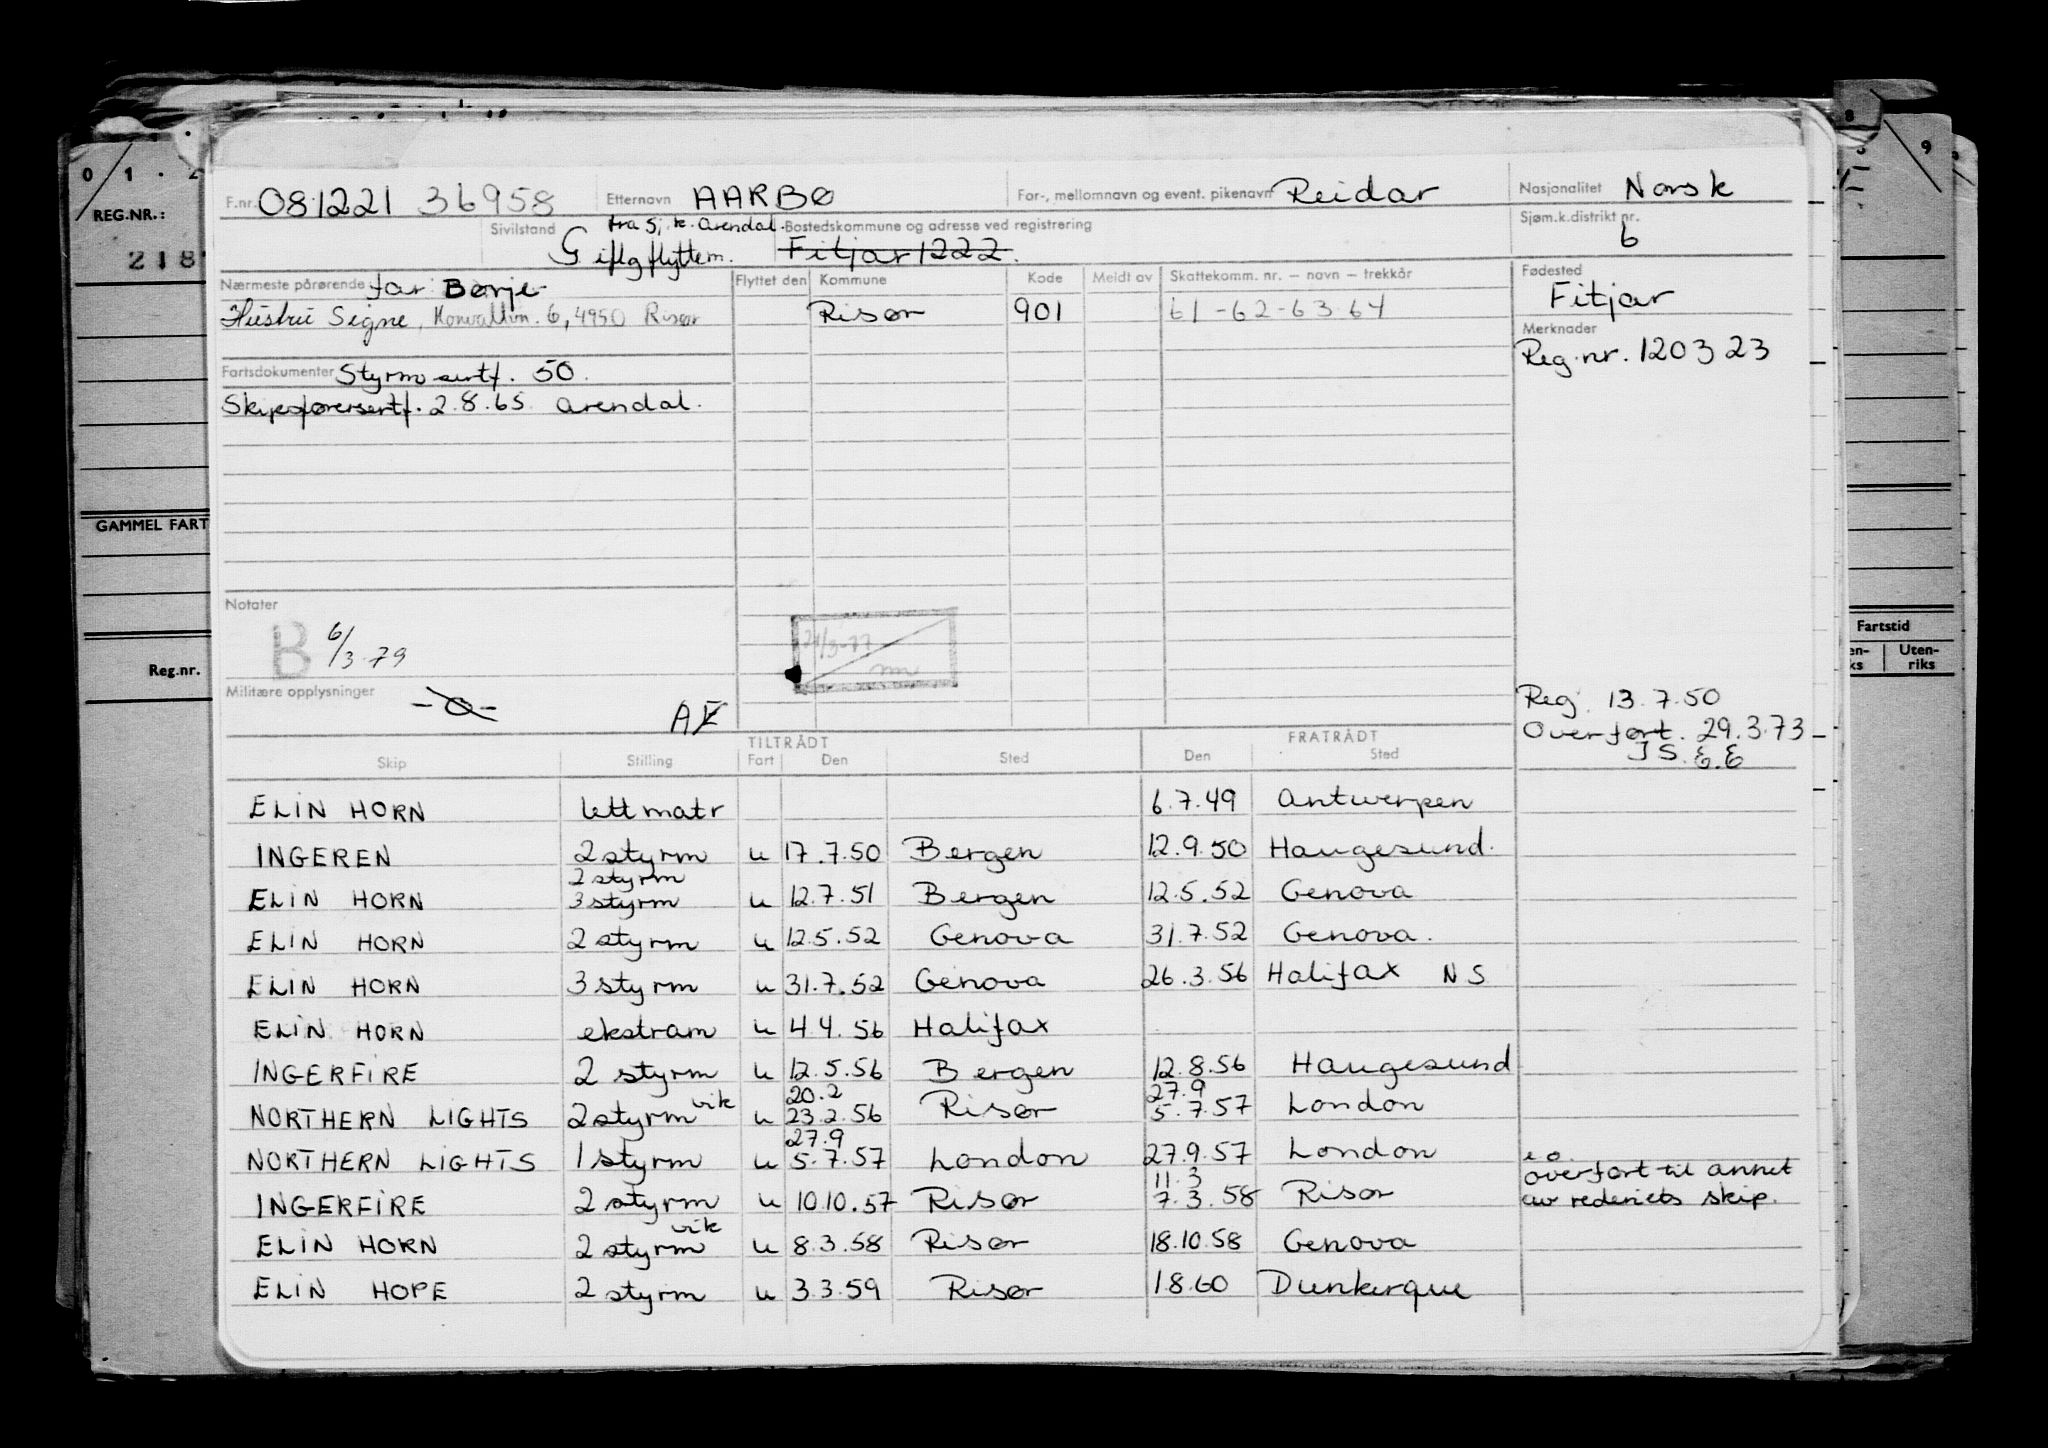 0 1 . 2
REG.NR.:
218
GAMMEL FART
Reg.nr.
8 9
Fartstid
en-ks Uten-riks
F.nr. 081221 36958 Etternavn AARBØ For-, mellomnavn og event. pikenavn Reidar Nasjonalitet Norsk
Sivilstand Gift fra Sj.k. Arendal. Bostedskommune og adresse ved registrering Sjøm.k.distrikt nr. 6
iflg flyttem. Fitjar 1222.
Nærmeste pårørende far: Børje Flyttet den Kommune Kode Meldt av Skattekomm. nr. – navn – trekkår Fødested
Hustru Signe, 6, 4950 Risør Risør 901 61-62-63-64 Fitjar
Merknader
Fartsdokumenter Styrm sertf. 50. Reg.nr. 120323
Skipsførersertf. 2.8.65 Arendal.
Notater
B 6/3-79
21/3-77
Militære opplysninger -0- AE
Reg. 13.7.50
Overført. 29.3.73
JS. E.E
TILTRÅDT FRATRÅDT
Skip Stilling Fart Den Sted Den Sted
ELIN HORN lettmatr 6.7.49 Antwerpen
INGEREN 2 styrm u 17.7.50 Bergen 12.9.50 Haugesund.
2 styrm
ELIN HORN 3 styrm u 12.7.51 Bergen 12.5.52 Genova
ELIN HORN 2 styrm u 12.5.52 Genova 31.7.52 Genova.
ELIN HORN 3 styrm u 31.7.52 Genova 26.3.56 Halifax NS
ELIN HORN ekstram u 4.4.56 Halifax
INGERFIRE 2 styrm u 12.5.56 Bergen 12.8.56 Haugesund
vik 20.2 27.9
NORTHERN LIGHTS 2 styrm u 23.2.56 Risør 5.7.57 London
27.9
NORTHERN LIGHTS 1 styrm u 5.7.57 London 27.9.57 London
11.3 overført til annet
INGERFIRE 2 styrm u 10.10.57 Risør 7.3.58 Risør av rederiets skip.
vik
ELIN HORN 2 styrm u 8.3.58 Risør 18.10.58 Genova
ELIN HOPE 2 styrm u 3.3.59 Risør 1.8.60 Dunkerque